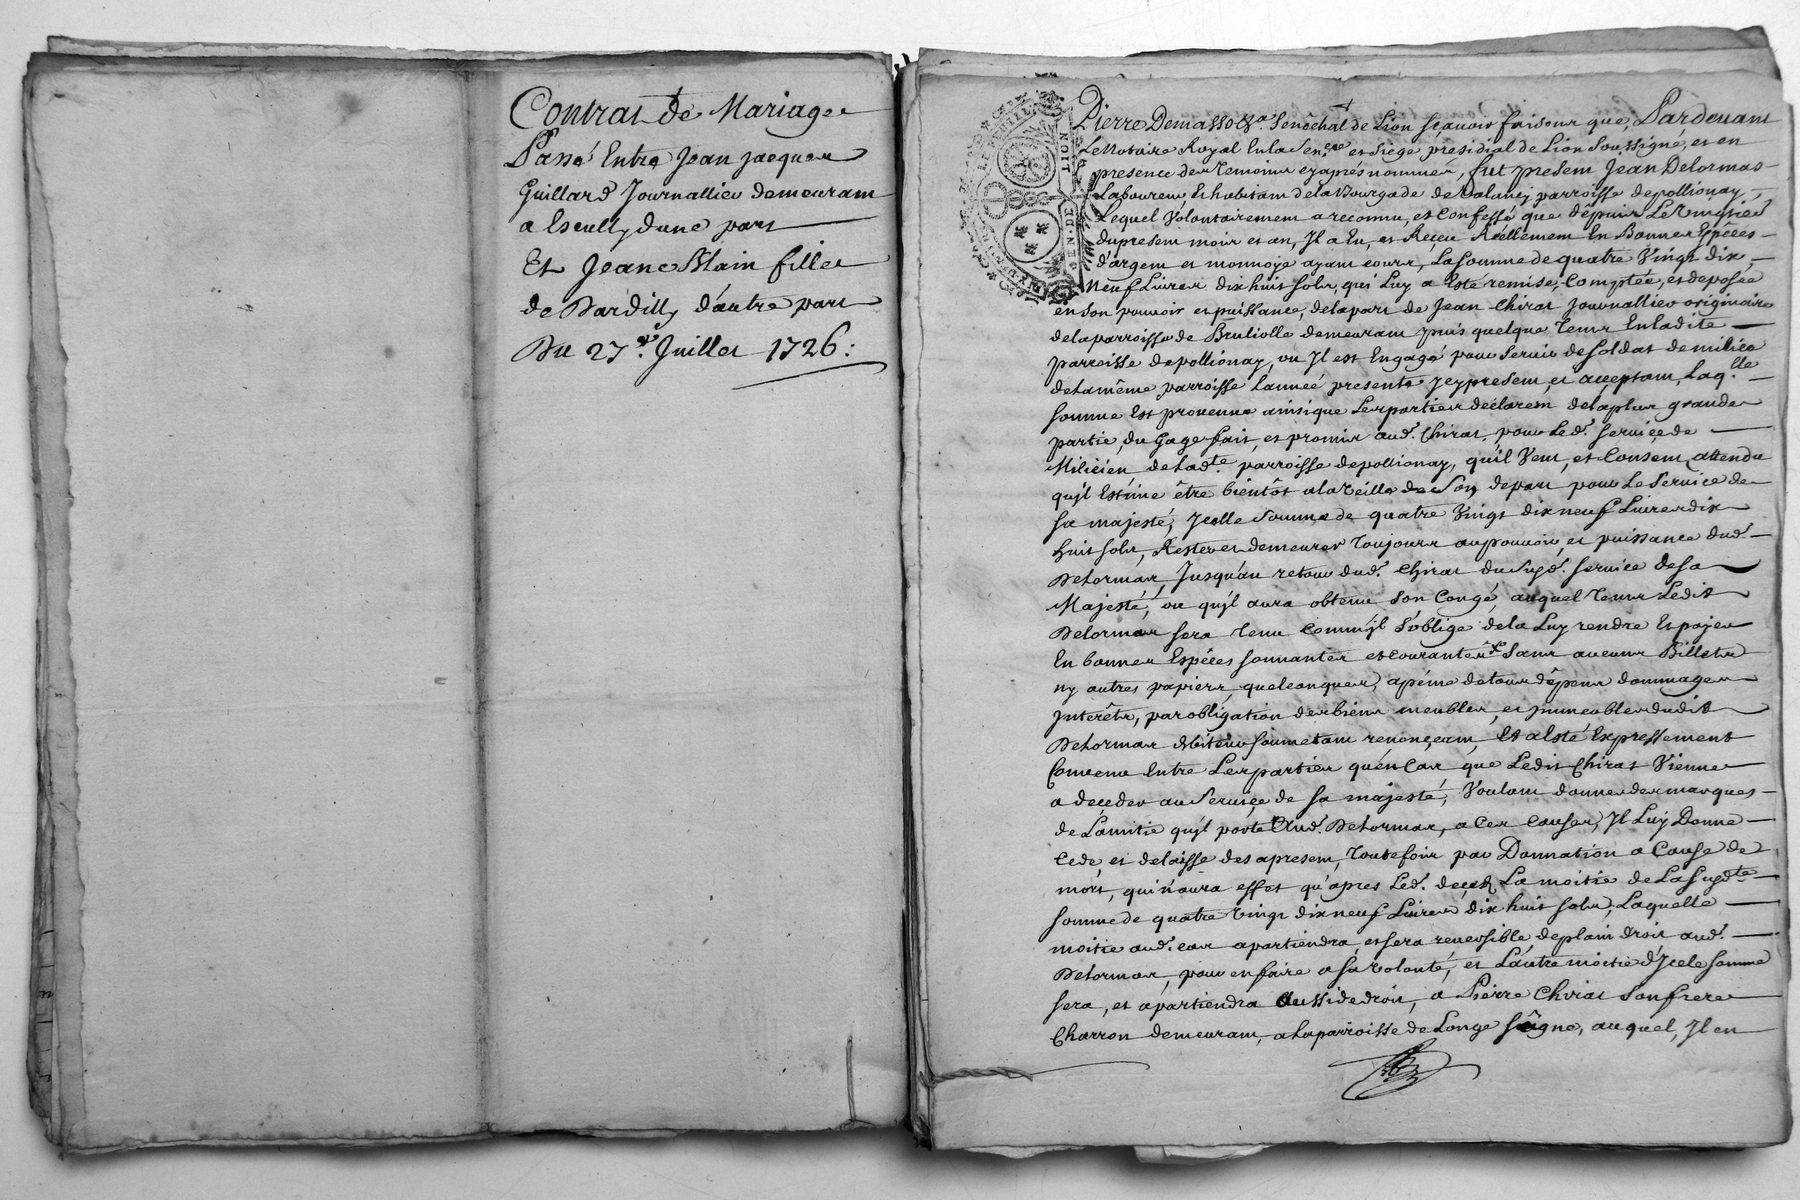 Contrat de Mariage
Passé Entre Jean Jacques
Guillard Journallier demeurant
a Escully dune part
Et Jeane Blain fille
de Dardilly d'autre part
Du 27e. Juillet 1726:
Pierre Demasso &a. Senéchal de Lion sçavoir faisons que, Pardevant
Le Notaire Royal En la Sen.ée et siège présidial de Lion Soussigné, et en
presence des temoins cy après nommés, fut present Jean Delormas
Laboureur, Et habitant de la Bourgade de parroisse de pollionay,
Lequel Volontairement a reconnu, et Confessé que depuis Le
du present mois et an, Il a Eu, et Reçeu Réellement En Bonnes Espèces
d'argent et monnoye ayant cours, La somme de quatre Vingt dix
neuf Livres dix huit sols, qui Luy a Esté remise, Comptée, et deposée
en son pouvoir et puissance, de la part de Jean Chirat Journallier originaire
de la parroisse de Brulliolle demeurant puis quelque tems En ladite
parroisse de pollionay, ou Il est Engagé pour servir de soldat de milice
de la même parroisse L'année presente Icy present et acceptant, Laq.lle
somme Est provenue ainsi que Les parties déclarent de la plus grande
partie, du Gage fait, et promis aud. Chirat, pour Led. serviçe de
Milicien de lad.te parroisse de pollionay, qu'il Veut, et Consent, attendu
qu'jl Estime être bientôt a la Veille de Son depart pour Le Service de
sa majesté, Jcelle Somme de quatre Vingt dix neuf Livres dix
huit sols, Rester et demeurer toujours au pouvoir, et puissance dud.
Delormas, Jusqu'au retour dud. Chirat du susd. service de sa
Majesté, ou qu'jl aura obtenu son Congé, auquel tems Ledit
Delormas sera tenu Comm'jl s'oblige de la Luy rendre Et payer
En bonnes Espèces sonnantes et courantes Sans aucuns Billets
ny autres papiers quelconques, a péine de tous dépens dommages
Jnterêts, par obligation des biens meubles, et jmmeubles dudit
Delormas soumetant renonçeant, Et a Esté Expressement
Convenu Entre Les parties qu'en Cas que Ledit Chirat Vienne
a deçeder au Serviçe de sa majesté, Voulant donner des marques
de L'amitie qu'jl porte Aud. Delormas, a Ces Causes, Il Luy Donne
Cede, et delaisse des apresent, toutefois par Donnation a Cause de
mort, qui n'aura effet qu'apres Led. deçed La moitie de La susd.te
somme de quatre Vingt dix neuf Livres dix huit sols, Laquelle
moitie aud. cas apartiendra et sera reversible, de plain droit aud.
Delormas, pour en faire a sa Volonté, et L'autre moitie d'Jcele somme
sera, et apartiendra Aussi de droit, a Pierre Chirat Son frere
Charron demeurant, a La parroisse de Longe saigne, auquel, Jl en